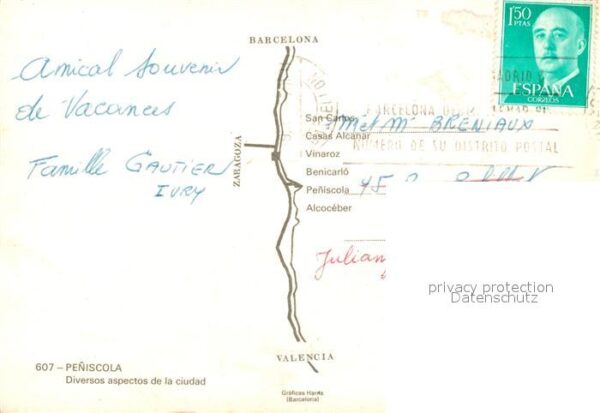 Amical Souvenir
de Vacances
Famille GAUTIER
IVRY
607 – PEÑISCOLA
Diversos aspectos de la ciudad
BARCELONA
ZARAGOZA
San Carlos
Casas Alcanar
Vinaroz
Benicarló
Peñíscola
Alcocéber
VALENCIA
Gráficas Harris
(Barcelona)
1'50
PTAS
ESPAÑA
CORREOS
MADRID
BARCELONA
NUMERO DE SU DISTRITO POSTAL
M et Me BRENIAUX
45
Julian
privacy protection
Datenschutz